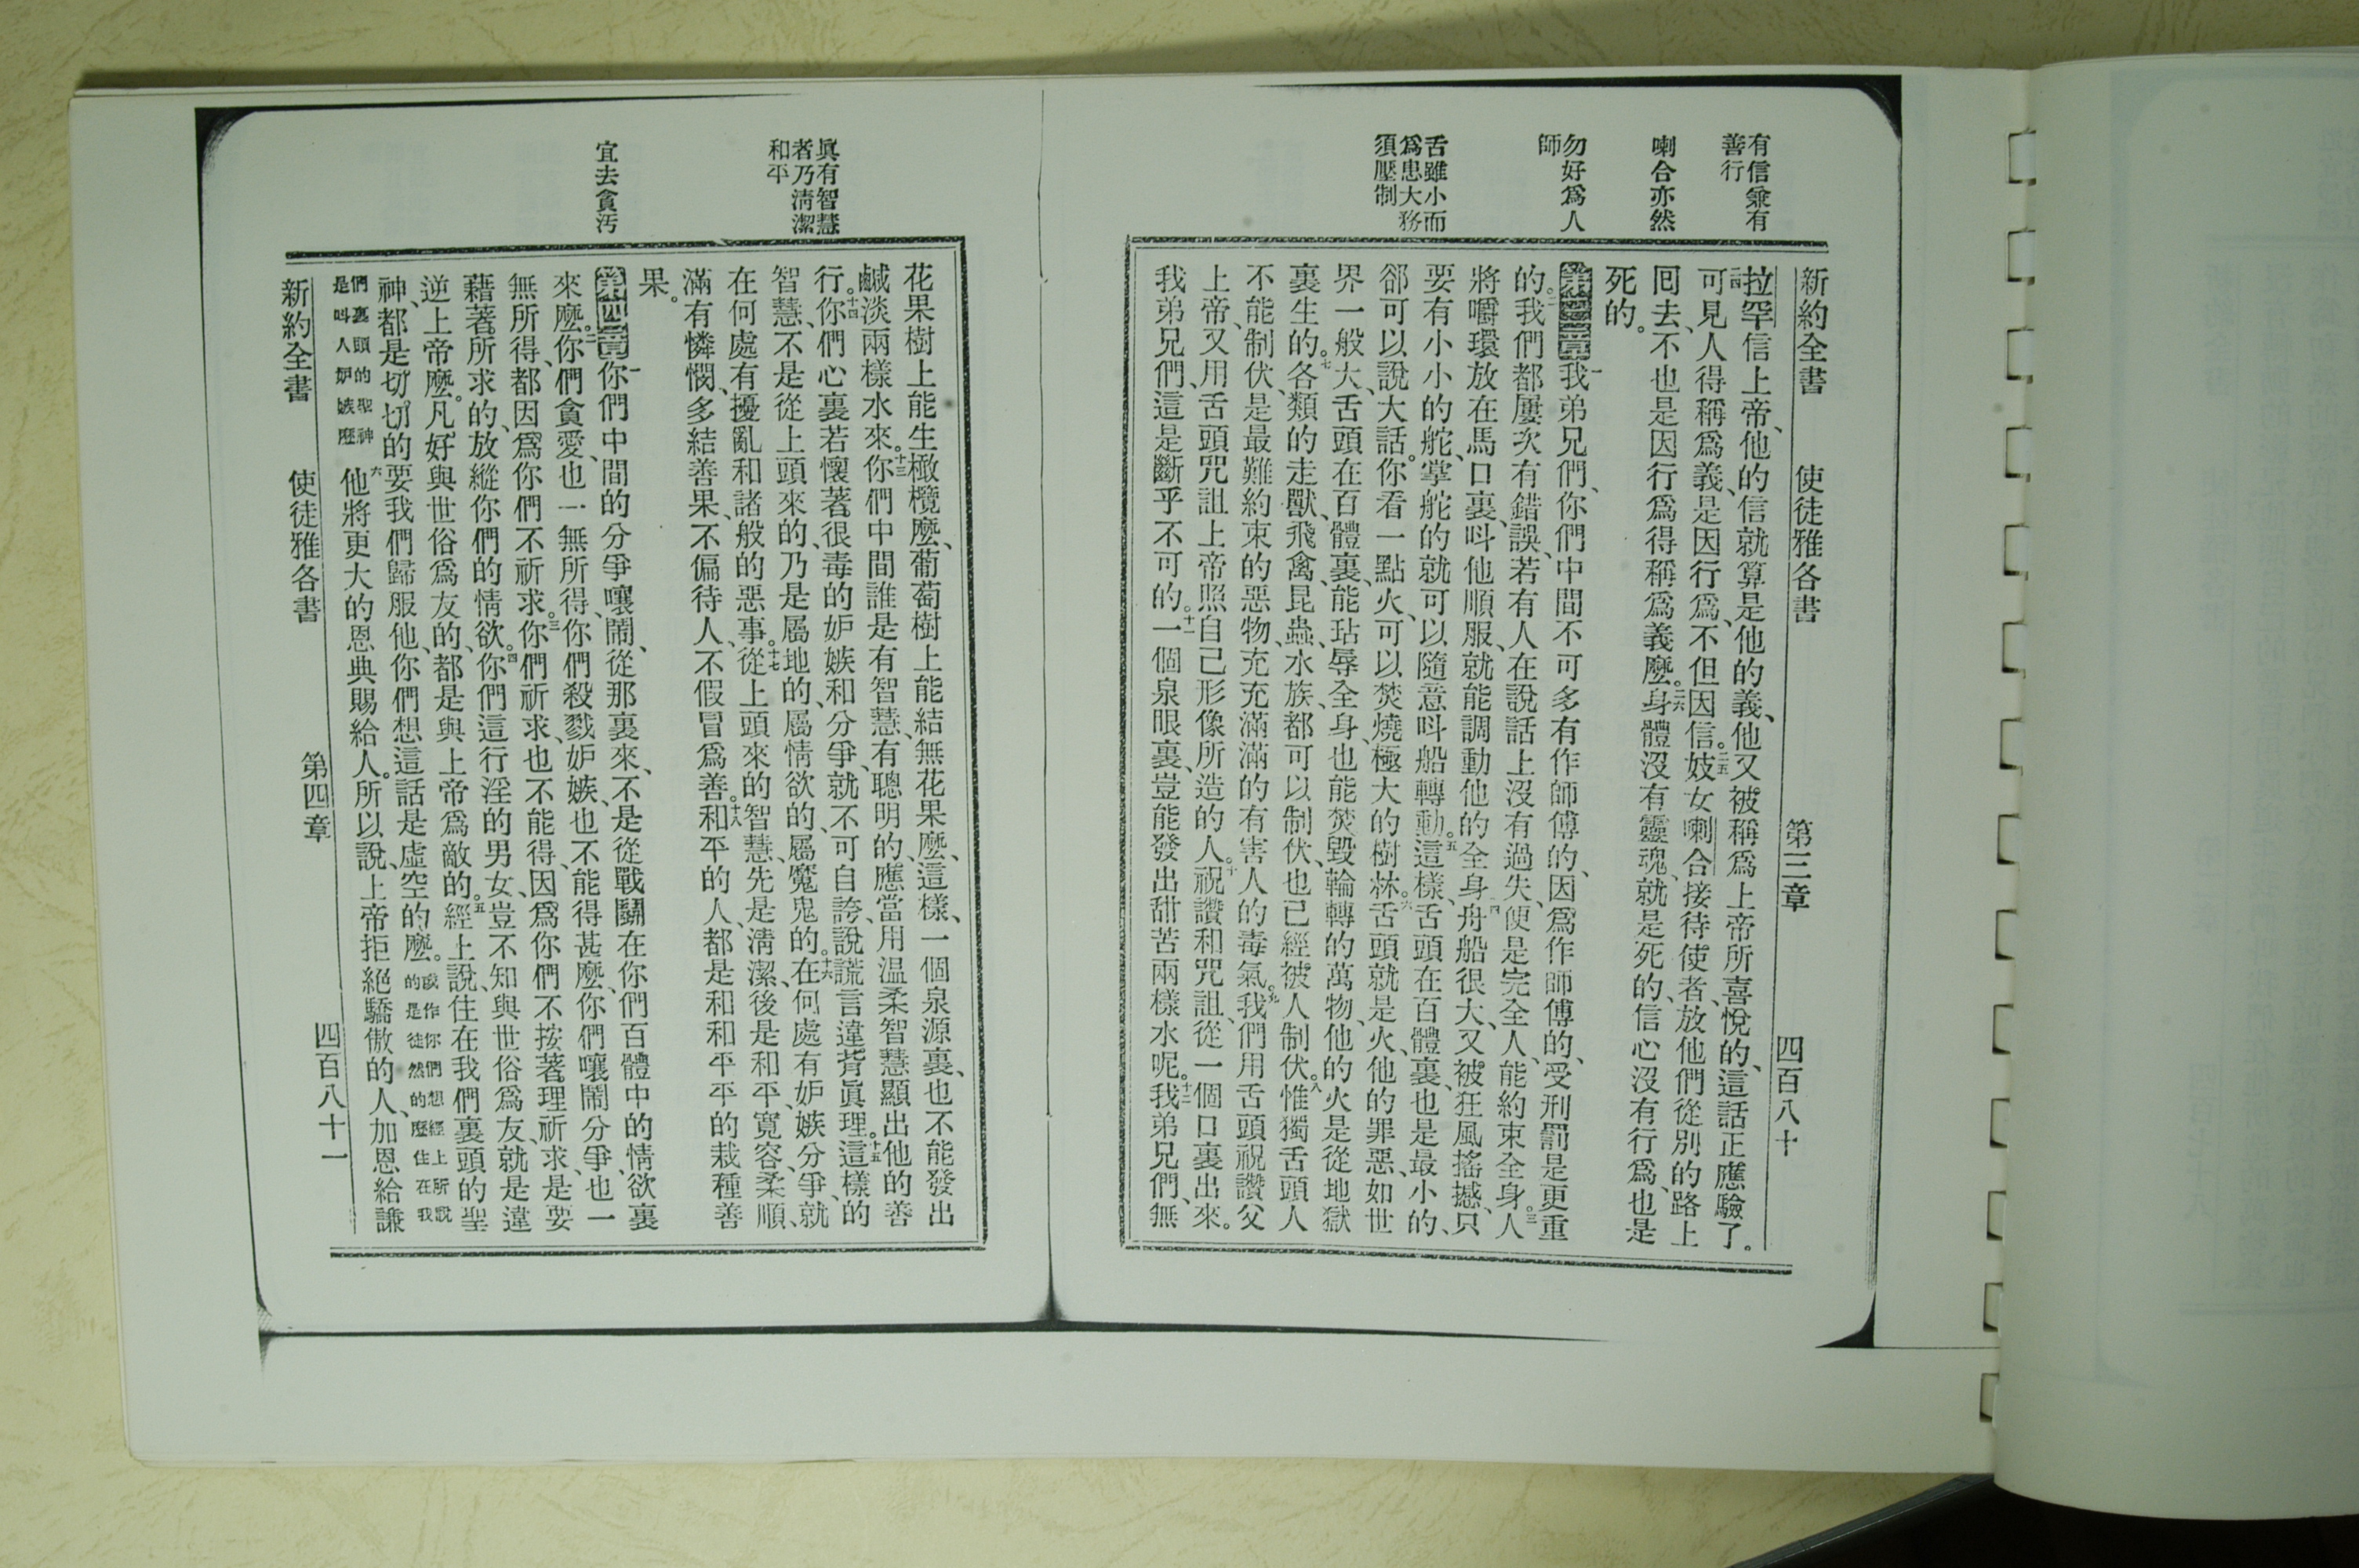 有信兼有
善行
喇合亦然
勿好爲人
師
舌雖小而
爲患大務
須壓制
新約全書 使徒雅各書 第三章 四百八十
拉罕信上帝、他的信就算是他的義、他又被稱爲上帝所喜悅的、這話正應驗了。
二四可見人得稱爲義、是因行爲、不但因信。二五妓女喇合接待使者、放他們從別的路上
囘去、不也是因行爲得稱爲義麽。二六身體沒有靈魂、就是死的、信心沒有行爲、也是
死的。
第三章一我弟兄們、你們中間不可多有作師傅的、因爲作師傅的、受刑罰是更重
的。二我們都屢次有錯誤、若有人在說話上沒有過失、便是完全人、能約束全身。三人
將嚼環放在馬口裏、呌他順服、就能調動他的全身、四舟船很大、又被狂風搖撼、只
要有小小的舵、掌舵的就可以隨意呌船轉動。五這樣、舌頭在百體裏、也是最小的、
郤可以說大話。你看一點火、可以焚燒極大的樹林。六舌頭就是火、他的罪惡、如世
界一般大、舌頭在百體裏、能玷辱全身、也能焚毀輪轉的萬物、他的火是從地獄
裏生的。七各類的走獸、飛禽、昆蟲、水族、都可以制伏、也已經被人制伏。八惟獨舌頭人
不能制伏、是最難約束的惡物、充充滿滿的有害人的毒氣。九我們用舌頭祝讚父
上帝、又用舌頭咒詛上帝照自己形像所造的人。十祝讚和咒詛、從一個口裏出來。
我弟兄們、這是斷乎不可的。十一一個泉眼裏、豈能發出甜苦兩樣水呢。十二我弟兄們、無
眞有智慧
者乃淸潔
和平
宜去貪汚
花果樹上能生橄欖麽、葡萄樹上能結無花果麽、這樣、一個泉源裏、也不能發出
鹹淡兩樣水來。十三你們中間誰是有智慧、有聰明的、應當用温柔智慧顯出他的善
行。十四你們心裏若懷著很毒的妒嫉和分爭、就不可自誇說謊言違背眞理。十五這樣的
智慧、不是從上頭來的、乃是屬地的、屬情欲的、屬魔鬼的。十六在何處有妒嫉分爭、就
在何處有擾亂和諸般的惡事。十七從上頭來的智慧、先是淸潔、後是和平、寬容、柔順、
滿有憐憫、多結善果、不偏待人、不假冒爲善。十八和平的人、都是和和平平的栽種善
果。
第四章一你們中間的分爭嚷鬧、從那裏來、不是從戰鬬在你們百體中的情欲裏
來麽。二你們貪愛、也一無所得、你們殺戮妒嫉、也不能得甚麽、你們嚷鬧分爭、也一
無所得、都因爲你們不祈求。三你們祈求、也不能得、因爲你們不按著理祈求、是要
藉著所求的、放縱你們的情欲。四你們這行淫的男女、豈不知與世俗爲友、就是違
逆上帝麽。凡好與世俗爲友的、都是與上帝爲敵的。五經上說、住在我們裏頭的聖
神、都是切切的要我們歸服他、你們想這話是虛空的麽。或作你們想經上所說
的是徒然的麽住在我
們裏頭的聖神
是呌人妒嫉麽 六他將更大的恩典賜給人。所以說、上帝拒絕驕傲的人、加恩給謙
新約全書 使徒雅各書 第四章 四百八十一